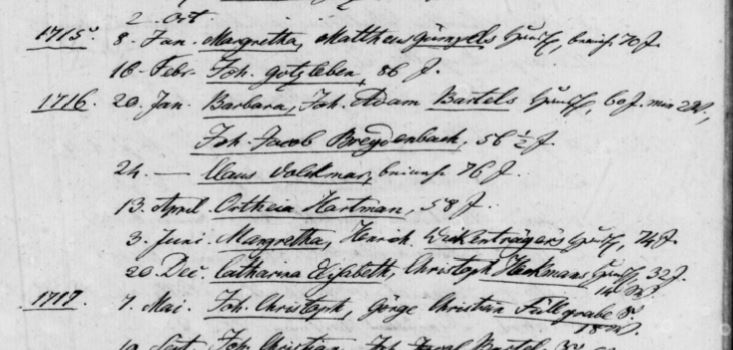 2. Oct
1715. 8. Jan. Margretha, Mattheus Güntzels Hausfr, beinah 70 J.
16. Febr. Joh. Gotzleben, 86 J.
1716. 20. Jan. Barbara, Joh. Adam Bartels Hausfr, 60 J. min
Joh. Jacob Breydenbach, 56 ½ J.
24. — Claus Volckmar, beinah 76 J.
13. April Ortheia Hartman, 58 J.
3. Juni. Margretha, Henrich Hausfr, 74 J.
20. Dec. Catharina Elisabeth, Christoph Heckmans Hausfr, 32 J.
14
1717. 7. Mai. Joh. Christoph, Görge Christian Füllgrabe S.
18
Sept. Joh. Christian, Joh. Bartel